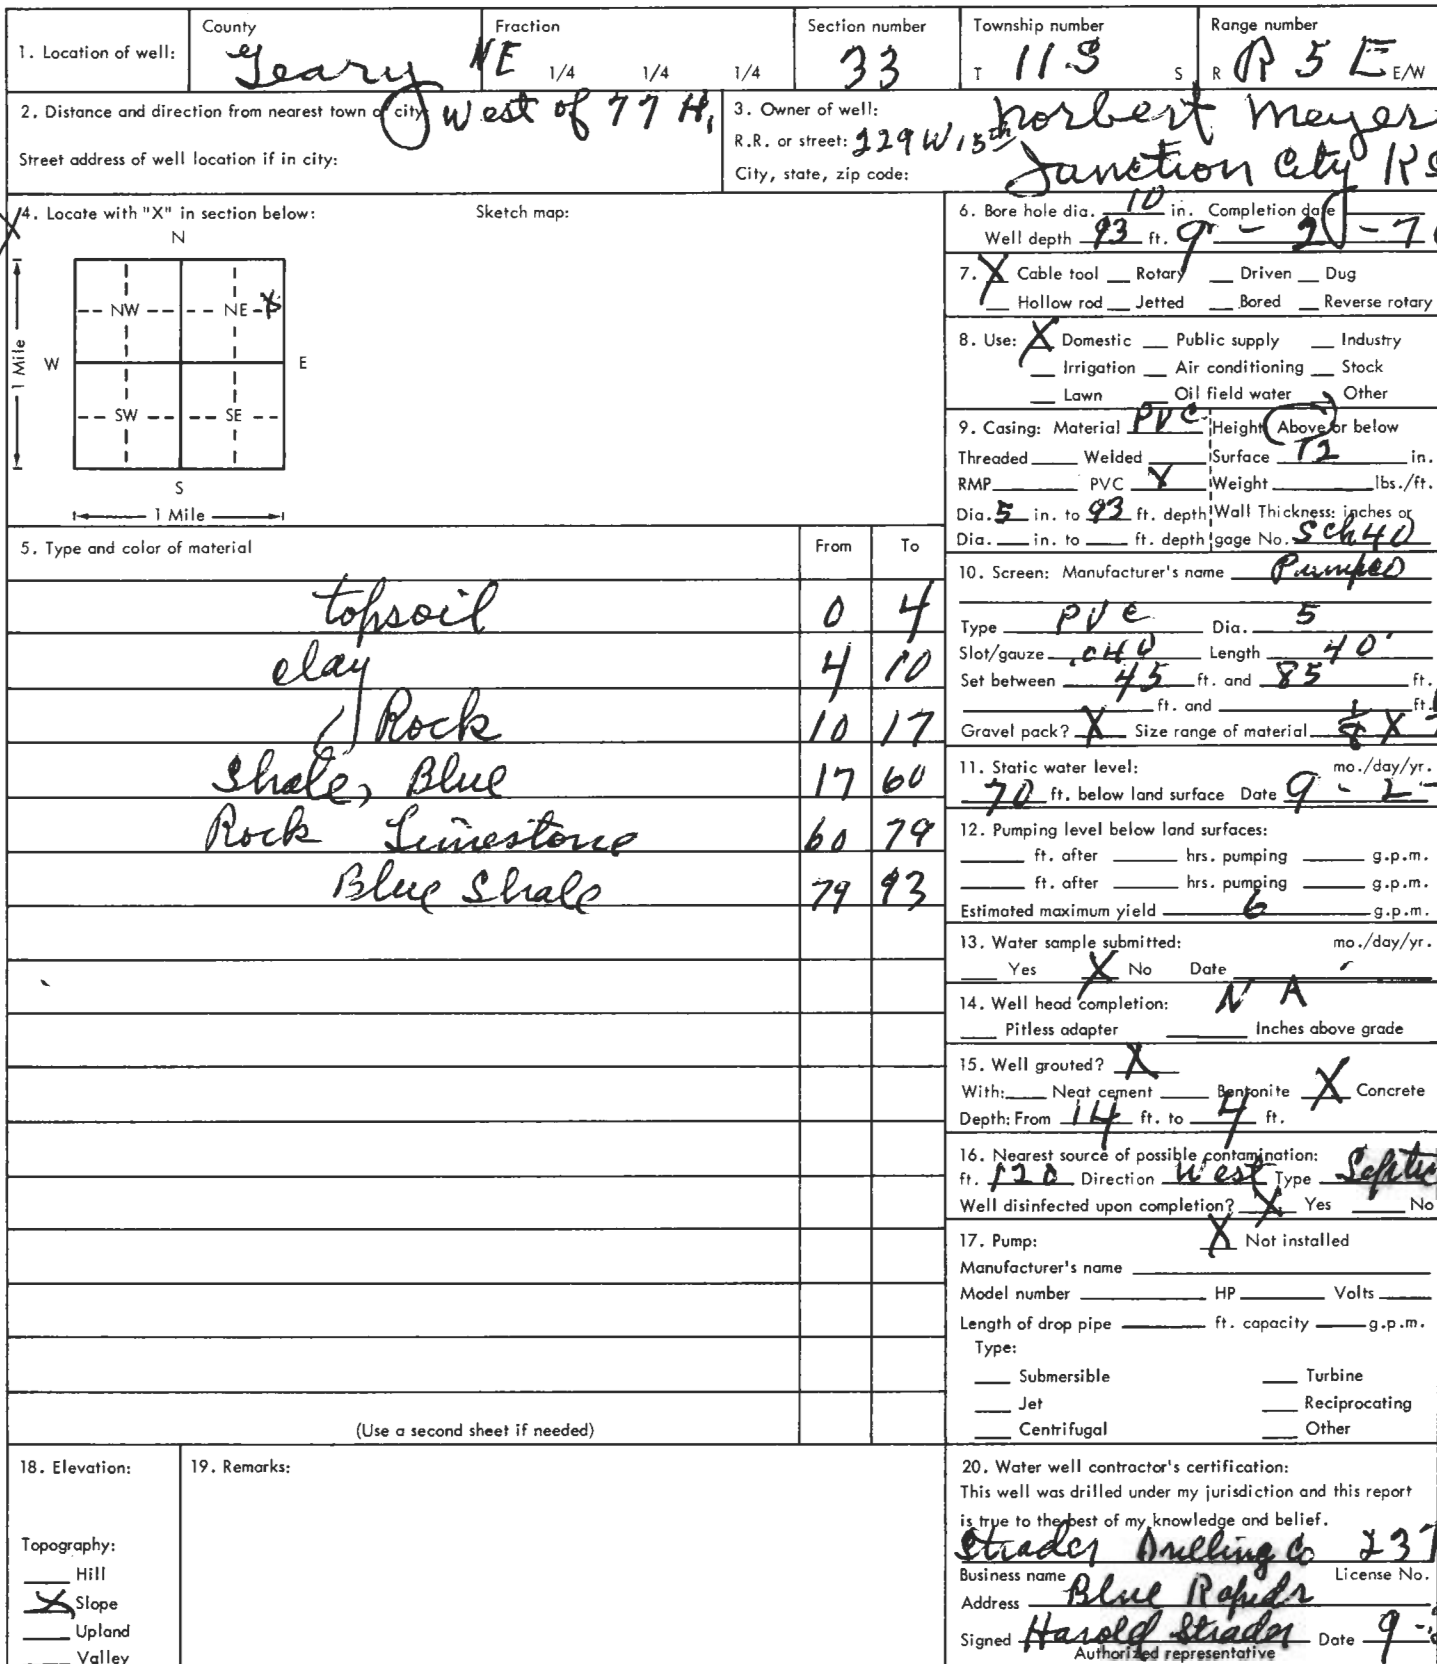 County Fraction Section number Township number Range number
1. Location of well: Geary NE 1/4 1/4 1/4 33 T 11S S R R 5 E E/W
2. Distance and direction from nearest town or city West of 77 H,
Street address of well location if in city:
3. Owner of well: Norbert Meyer
R.R. or street: 229 W 13th
City, state, zip code: Junction City KS
4. Locate with "X" in section below: Sketch map:
N
NW NE X
1 Mile W E
SW SE
S
1 Mile
5. Type and color of material From To
topsoil 0 4
clay 4 10
Rock 10 17
Shale, Blue 17 60
Rock Limestone 60 79
Blue Shale 79 93
(Use a second sheet if needed)
6. Bore hole dia. 10 in. Completion date
Well depth 93 ft. 9 - 2 - 7
7. X Cable tool Rotary Driven Dug
Hollow rod Jetted Bored Reverse rotary
8. Use: X Domestic Public supply Industry
Irrigation Air conditioning Stock
Lawn Oil field water Other
9. Casing: Material PVC Height Above or below
Threaded Welded Surface 12 in.
RMP PVC X Weight lbs./ft.
Dia. 5 in. to 93 ft. depth Wall Thickness: inches or
Dia. in. to ft. depth gage No. Sch 40
10. Screen: Manufacturer's name
Type PVC Dia. 5
Slot/gauze .040 Length 40'
Set between 45 ft. and 85 ft.
ft. and ft.
Gravel pack? X Size range of material 1/8 X
11. Static water level: mo./day/yr.
70 ft. below land surface Date 9 - 2 -
12. Pumping level below land surfaces:
ft. after hrs. pumping g.p.m.
ft. after hrs. pumping g.p.m.
Estimated maximum yield 6 g.p.m.
13. Water sample submitted: mo./day/yr.
Yes X No Date
14. Well head completion: N A
Pitless adapter Inches above grade
15. Well grouted? X
With: Neat cement Bentonite X Concrete
Depth: From 14 ft. to 4 ft.
16. Nearest source of possible contamination:
ft. 120 Direction West Type Septic
Well disinfected upon completion? X Yes No
17. Pump: X Not installed
Manufacturer's name
Model number HP Volts
Length of drop pipe ft. capacity g.p.m.
Type:
Submersible Turbine
Jet Reciprocating
Centrifugal Other
18. Elevation:
Topography:
Hill
X Slope
Upland
Valley
19. Remarks:
20. Water well contractor's certification:
This well was drilled under my jurisdiction and this report
is true to the best of my knowledge and belief.
Strader Drilling Co 237
Business name License No.
Address Blue Rapids
Signed Harold Strader Date 9 -
Authorized representative